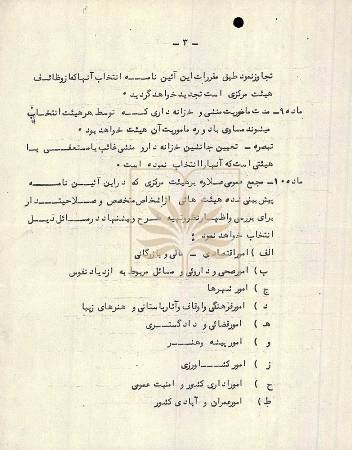 - ۳ -
تجاوز ننمود طبق مقررات این آئین نامه انتخاب آنها که از وظائف
هیئت مرکزی است تجدید خواهد گردید .
ماده ۹- مدت ماموریت منشی و خزانه داری که توسط هر هیئت انتخاب
میشوند مساوی با دوره ماموریت آن هیئت خواهد بود .
تبصره - تعیین جانشین خزانه دار یا منشی غائب یا مستعفی با
هیئتی است که آنها را انتخاب نموده است .
ماده ۱۰- مجمع عمومی علاوه بر هیئت مرکزی که در این آئین نامه
پیش بینی شده هیئت هائی از اشخاص متخصص و صلاحیتدار
برای بررسی و اظهار نظر و تهیه طرح و پیشنهاد در مسائل ذیل
انتخاب خواهد نمود :
الف ) امور اقتصادی - مالی و بازرگانی
ب ) امور صحی و داروئی و مسائل مربوط به ازدیاد نفوس
ج ) امور شهرها
د ) امور فرهنگی و اوقاف و آثار باستانی و هنرهای زیبا
هـ ) امور قضائی و دادگستری
و ) امور پیشه و هنر
ز ) امور کشاورزی
ح ) امور اداری کشور و امنیت عمومی
ط ) امور عمران و آبادی کشور